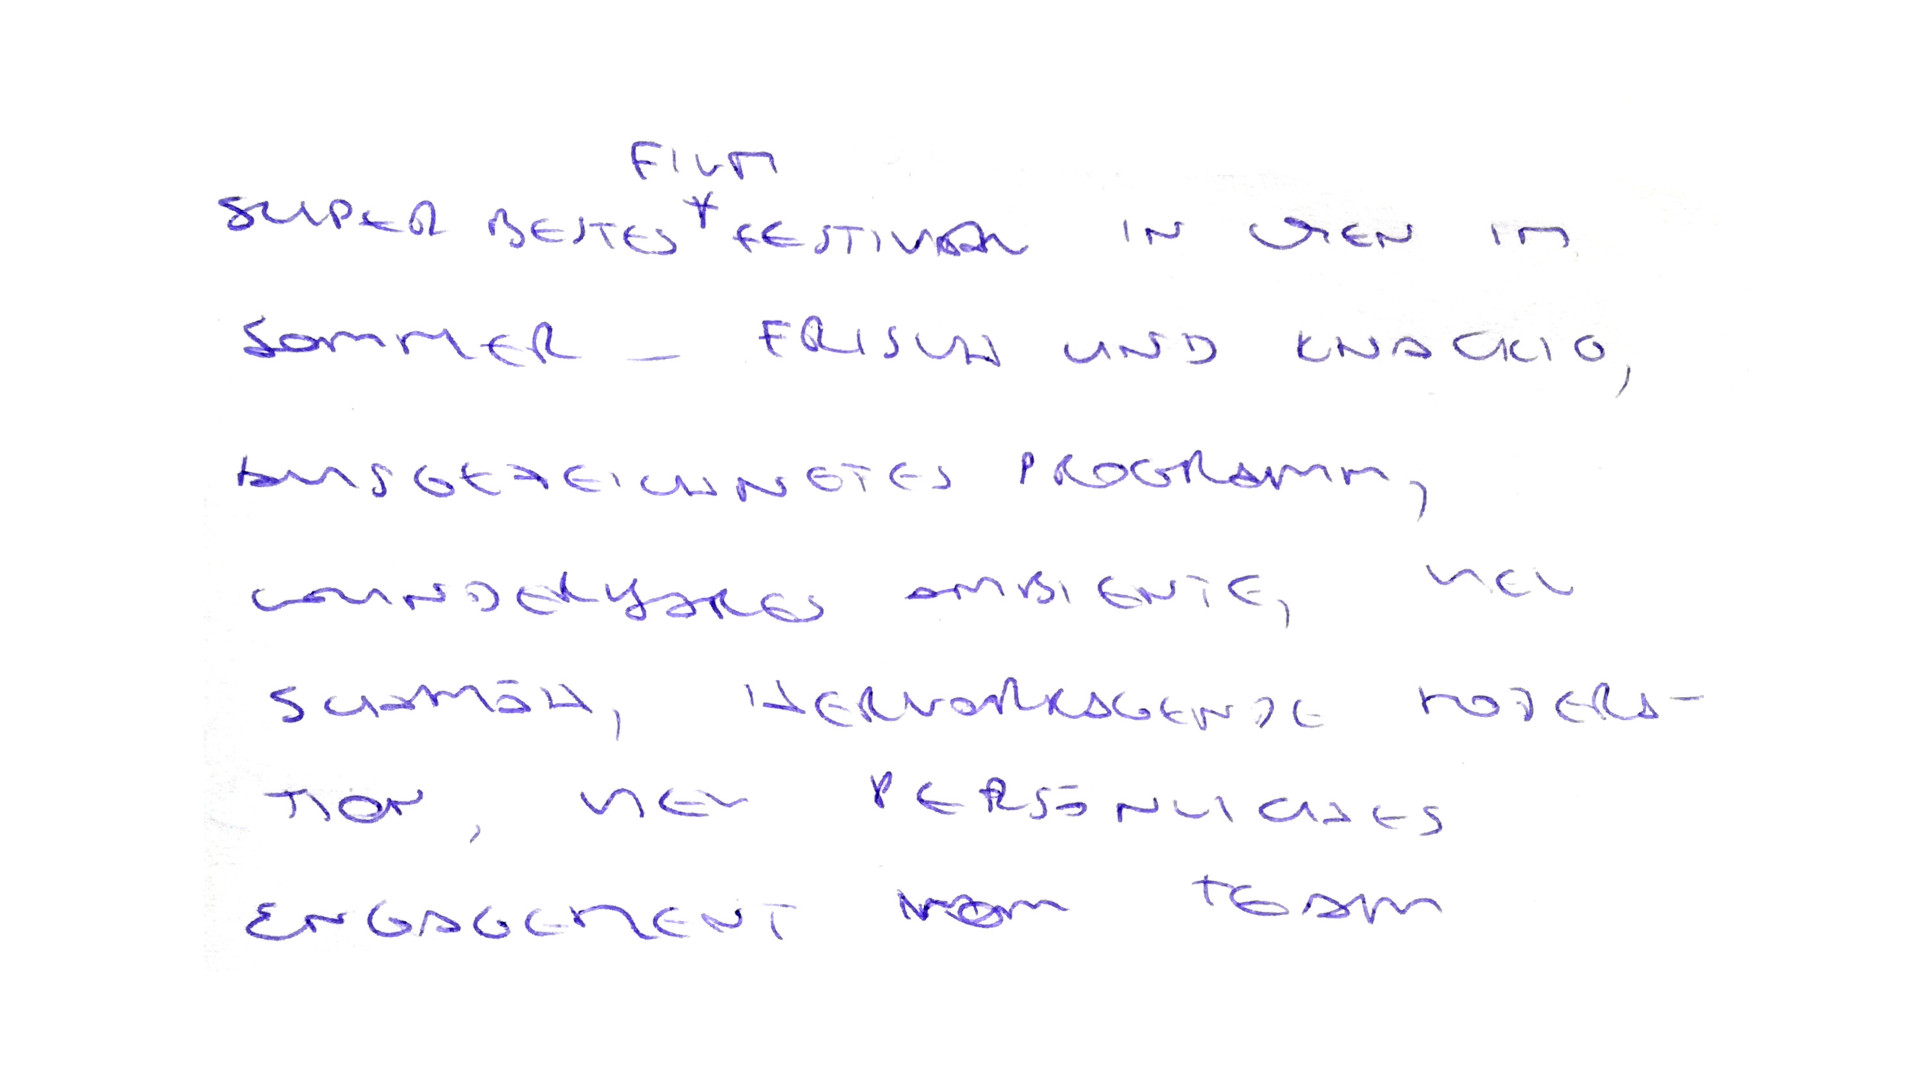 FILM
SUPER BESTES FESTIVAL IN WIEN IM
SOMMER – FRISCH UND KNACKIG,
AUSGEZEICHNETES PROGRAMM,
WUNDERBARES AMBIENTE, VIEL
SCHMÄH, HERVORRAGENDE MODERA-
TION, VIEL PERSÖNLICHES
ENGAGEMENT VOM TEAM